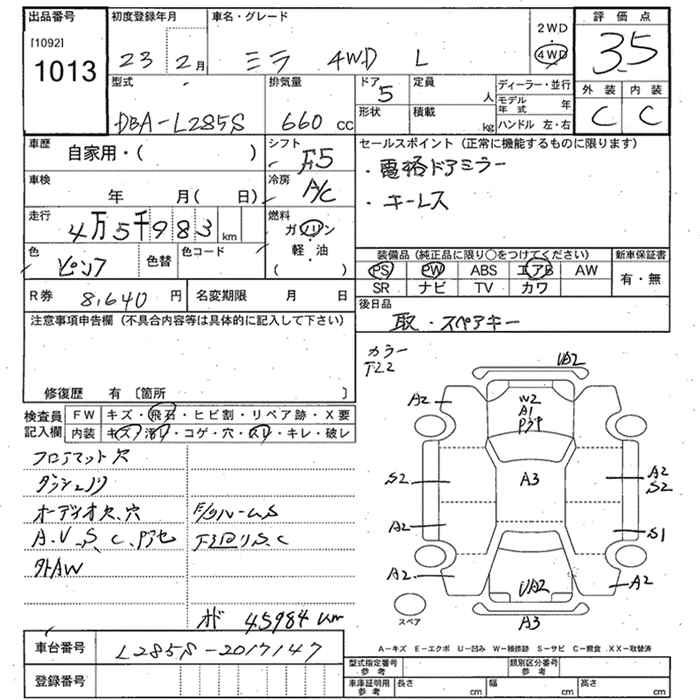 出品番号
[1092]
1013
初度登録年月
23 2月
車名・グレード
ミラ 4WD L
2WD
4WD
評価点
3.5
外装 内装
C C
型式
DBA-L285S
排気量
660 cc
ドア
5
形状
定員
人
積載
kg
ディーラー・並行
モデル年式 年
ハンドル 左・右
車歴
自家用・( )
車検
年 月( 日)
走行
4万5千983 km
色
ピンク
色替
色コード
シフト
F5
冷房
A/C
燃料
ガソリン
軽・油
( )
セールスポイント(正常に機能するものに限ります)
・電格ドアミラー
・キーレス
装備品(純正品に限り○をつけてください)
PS PW ABS エアB AW
SR ナビ TV カワ
新車保証書
有・無
R券 8,640 円
名変期限 月 日
後日品
取・スペアキー
注意事項申告欄(不具合内容等は具体的に記入して下さい)
修復歴 有〔箇所 〕
検査員記入欄
FW キズ・飛石・ヒビ割・リペア跡・X要
内装 キズ・汚れ・コゲ・穴・スレ・キレ・破レ
フロアマット穴
オーディオ欠、穴
A.V.S.C.
外AW
45984 km
カラー
T22
UA2
A2
W2
A1
S2
A3
A2
S2
A2
S1
A2
A2
UA2
A3
スペア
A-キズ E-エクボ U-凹み W-補修跡 S-サビ C-腐食 XX-取替済
車台番号
L285S-2017147
登録番号
型式指定番号
参考
類別区分番号
参考
車庫証明用
参考
長さ cm
幅 cm
高さ cm